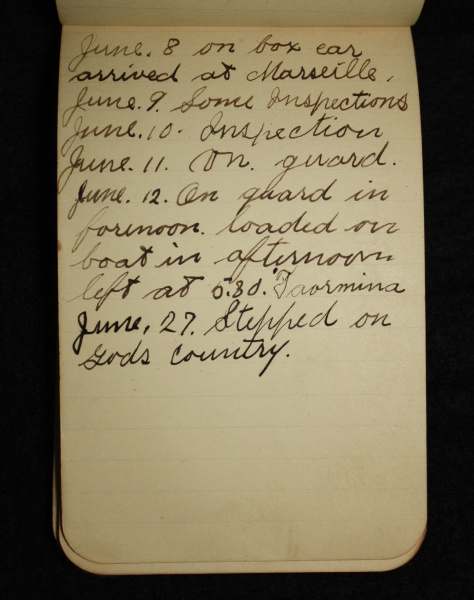 June. 8 on box car
arrived at Marseille,
June. 9. Some Inspections
June. 10. Inspection
June. 11. On. guard.
June. 12. On guard in
forenoon. loaded on
boat in afternoon
left at 5.30. Taormina
June, 27. Stepped on
Gods country.